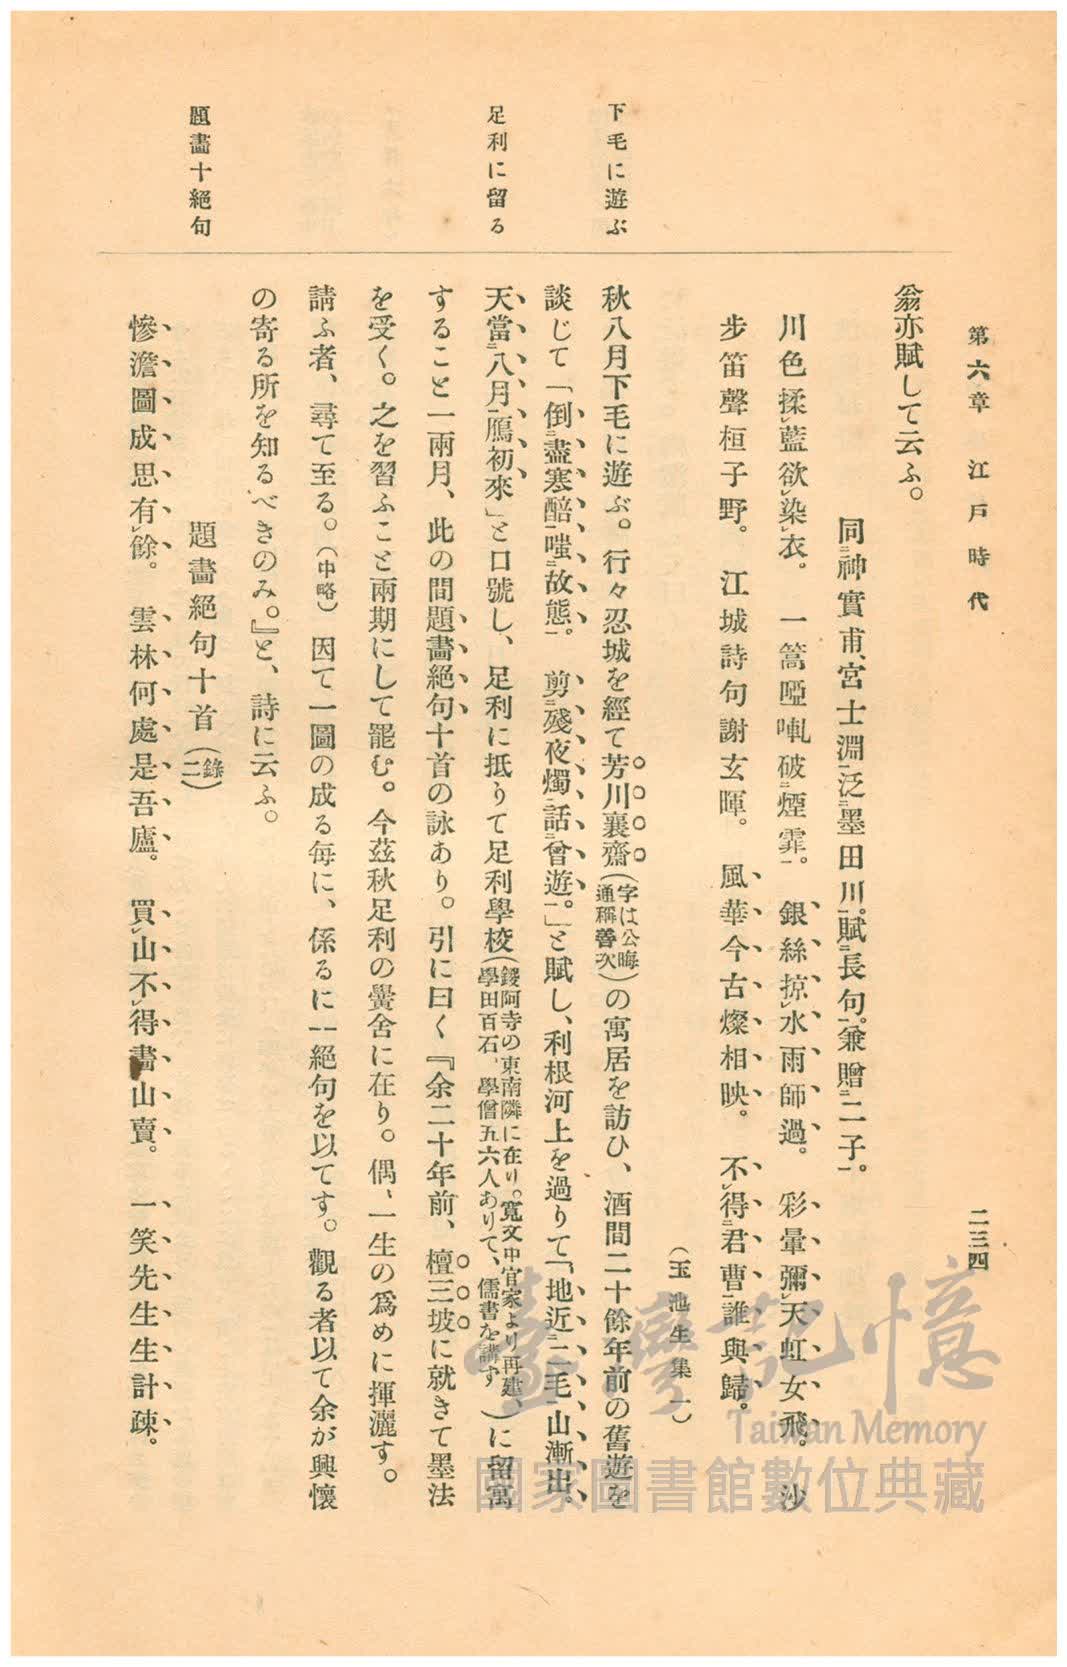 第六章 江戸時代
二三四
翁亦賦して云ふ。
同二神實甫、宮士淵一泛二墨田川一。賦二長句一。兼贈二二子一。
川色揉レ藍欲レ染レ衣。 一篙啞軋破二煙霏一。 銀絲掠レ水雨師過。 彩暈彌レ天虹女飛。 沙
步笛聲桓子野。 江城詩句謝玄暉。 風華今古燦相映。 不レ得二君曹一誰與歸。
(玉池生集一)
下毛に遊ぶ
秋八月下毛に遊ぶ。行々忍城を經て芳川襄齋(字は公晦通稱善次)の寓居を訪ひ、酒間二十餘年前の舊遊を
談じて「倒二盡寒醅一嗤二故態一。 剪二殘夜燭一話二曾遊一。」と賦し、利根河上を過りて「地近二二毛一山漸出。
足利に留る
天當二八月一鴈初來」と口號し、足利に抵りて足利學校(鑁阿寺の東南隣に在り。寬文中官家より再建、學田百石、學僧五六人ありて、儒書を講ず)に留寓
すること一兩月、此の間題畵絕句十首の詠あり。引に曰く『余二十年前、檀三坡に就きて墨法
を受く。之を習ふこと兩期にして罷む。今茲秋足利の黌舍に在り。偶、一生の爲めに揮灑す。
請ふ者、尋て至る。(中略) 因て一圖の成る每に、係るに一絕句を以てす。觀る者以て余が興懷
の寄る所を知るべきのみ。』と、詩に云ふ。
題畵十絕句
題畵絕句十首(錄二)
慘澹圖成思有レ餘。 雲林何處是吾廬。 買レ山不レ得畵山賣。 一笑先生生計疎。
臺灣記憶
Taiwan Memory
國家圖書館數位典藏